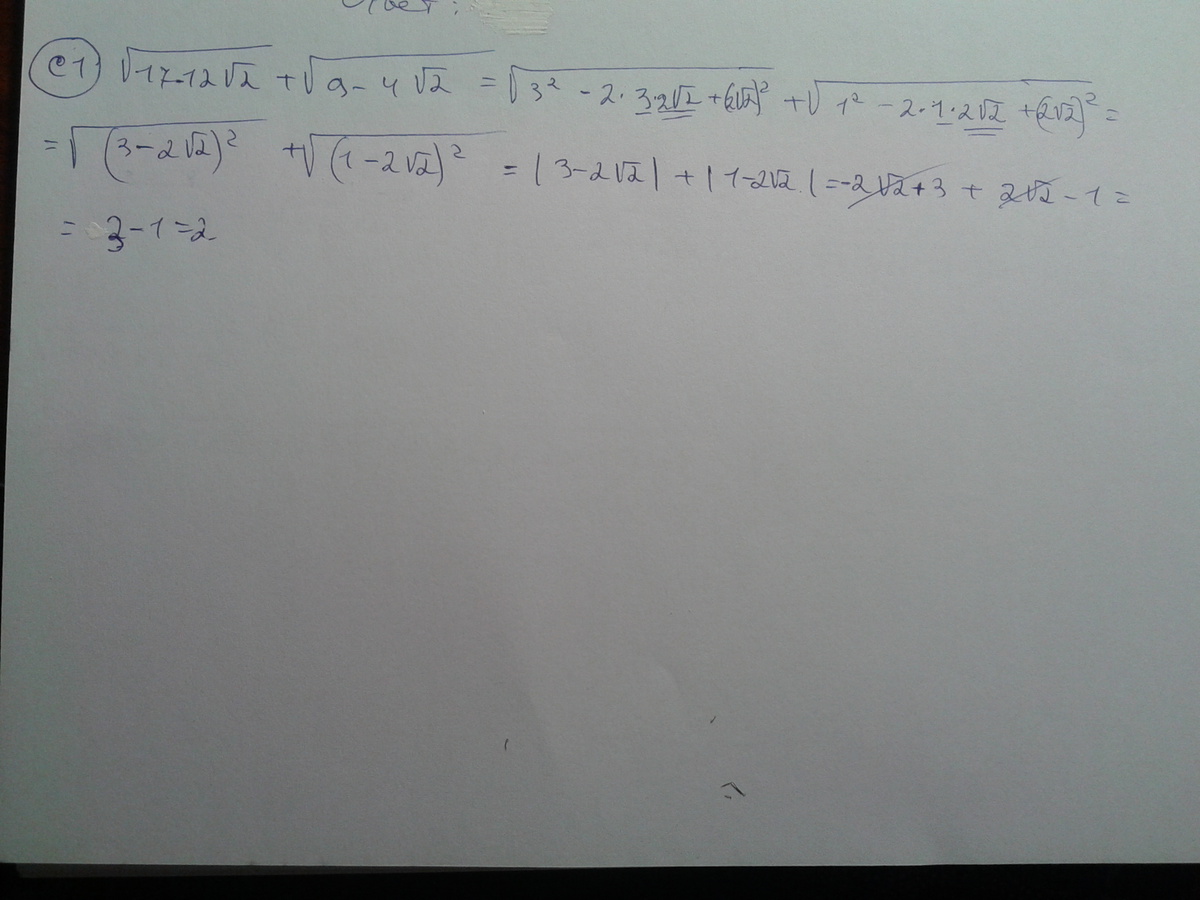 Ответ:
С1 √(17-12√2) + √(9-4√2) = √(3² - 2·3·2√2 + (2√2)²) + √(1² - 2·1·2√2 + (2√2)²) =
= √((3-2√2)²) + √((1-2√2)²) = |3-2√2| + |1-2√2| = -2√2+3 + 2√2 - 1 =
= 3-1=2